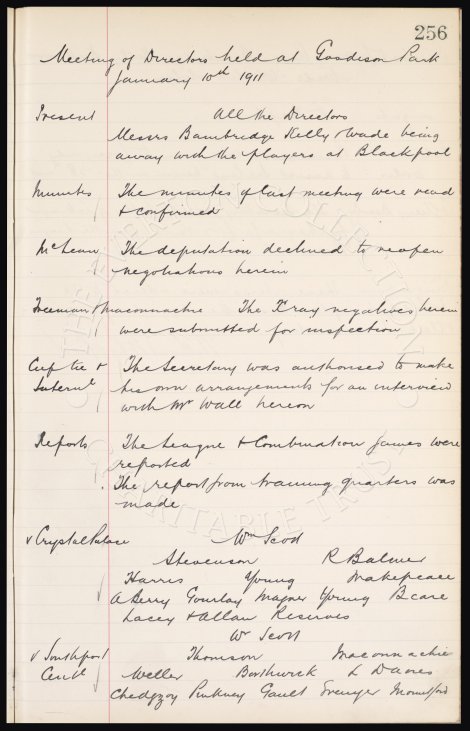 256
Meeting of Directors held at Goodison Park
January 10th 1911
Present All the Directors
Messrs Bainbridge Kelly & Wade being
away with the players at Blackpool
Minutes The minutes of last meeting were read
& confirmed
McLean The deputation declined to reopen
negotiations herein
Freeman & Maconnachie The X ray negatives herein
were submitted for inspection
Cup tie & The Secretary was authorised to make
Internl his own arrangements for an interview
with Mr Wall hereon
Reports The League & Combination games were
reported
The report from training quarters was
made
v Crystal Palace Wm Scott
Stevenson R Balmer
Harris Young Makepeace
A Berry Gourlay Magner Young Beare
Lacey & Allan Reserves
Wr Scott
v Southport Thomson Maconnachie
Cenl Weller Borthwick L Davies
Chedgzoy Pinkney Gault Grenyer Mountford
THE EVERTON COLLECTION
CHARITABLE TRUST